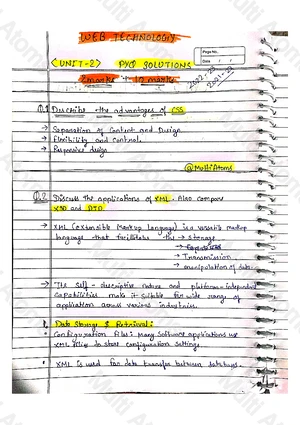 WEB TECHNOLOGY
Page No.
Date / /
(UNIT-2) PYQ SOLUTIONS
2022-23
2021-22
2 marks + 10 marks
Q.1 Describe the advantages of CSS
→ Separation of Content and Design
→ Flexibility and control
→ Responsive design
@MultiAtoms
Q.2 Discuss the applications of XML. Also compare
XSD and DTD
→ XML (extensible Markup language) is a versatile markup
language that facilitates the → storage
→ Transmission
→ manipulation of data
→ The self-descriptive nature and platform-independent
capabilities make it suitable for wide range of
application across various industries.
Data Storage & Retrieval:
Configuration files: many software applications use
XML files to store configuration settings.
XML is used for data transfer between databases.
Multi Atoms